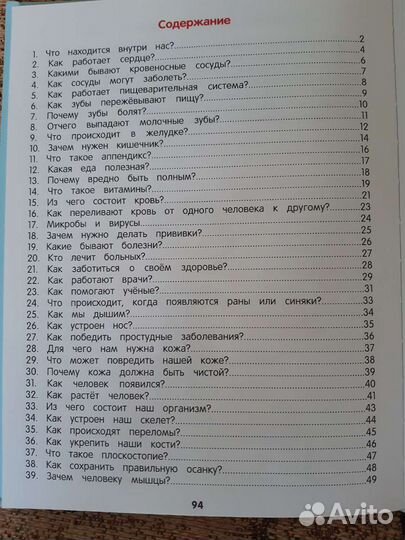 Содержание
1. Что находится внутри нас?.....2
2. Как работает сердце?.....4
3. Какими бывают кровеносные сосуды?.....6
4. Как сосуды могут заболеть?.....7
5. Как работает пищеварительная система?.....8
6. Как зубы пережёвывают пищу?.....9
7. Почему зубы болят?.....10
8. Отчего выпадают молочные зубы?.....11
9. Что происходит в желудке?.....12
10. Зачем нужен кишечник?.....14
11. Что такое аппендикс?.....16
12. Какая еда полезная?.....17
13. Почему вредно быть полным?.....18
14. Что такое витамины?.....19
15. Из чего состоит кровь?.....21
16. Как переливают кровь от одного человека к другому?.....23
17. Микробы и вирусы.....24
18. Зачем нужно делать прививки?.....25
19. Какие бывают болезни?.....26
20. Кто лечит больных?.....27
21. Как заботиться о своём здоровье?.....28
22. Как работают врачи?.....29
23. Как помогают учёные?.....31
24. Что происходит, когда появляются раны или синяки?.....33
25. Как мы дышим?.....34
26. Как устроен нос?.....35
27. Как победить простудные заболевания?.....36
28. Для чего нам нужна кожа?.....37
29. Что может повредить нашей коже?.....38
30. Почему кожа должна быть чистой?.....39
31. Как человек появился?.....40
32. Как растёт человек?.....41
33. Из чего состоит наш организм?.....43
34. Как устроен наш скелет?.....44
35. Как происходят переломы?.....45
36. Как укрепить наши кости?.....46
37. Что такое плоскостопие?.....47
38. Как сохранить правильную осанку?.....48
39. Зачем человеку мышцы?.....49
94
Avito